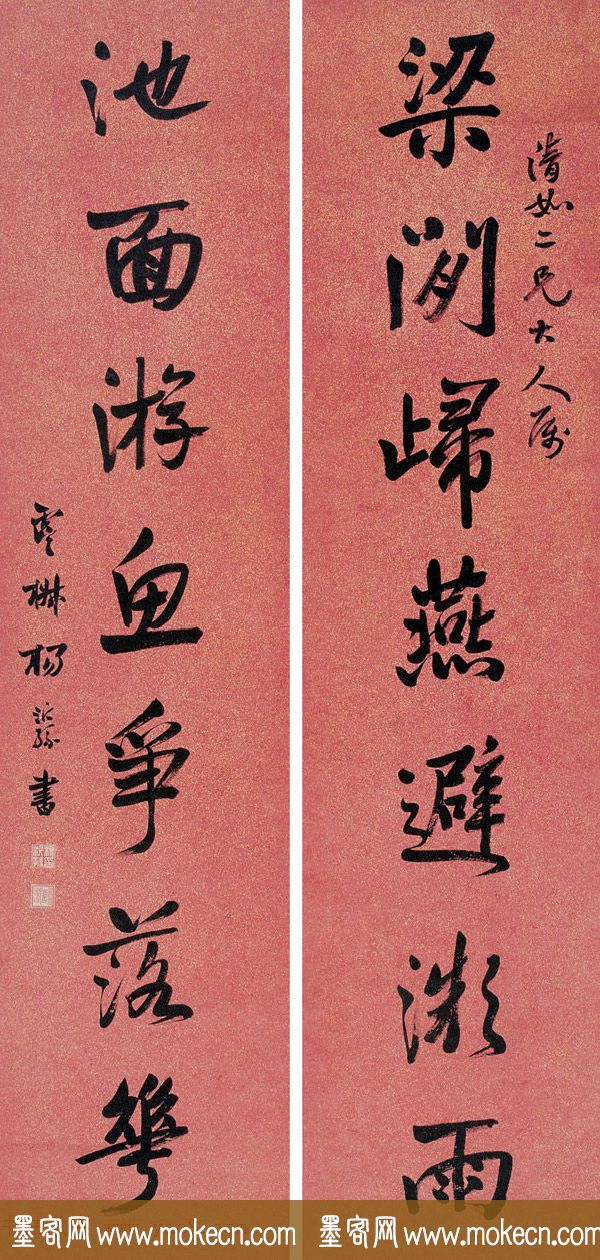 清如二兄大人属
梁閒歸燕避溦雨
池面游魚爭落華
楊沂孫書
墨客网 www.mokecn.com
墨客网 www.mokecn.com